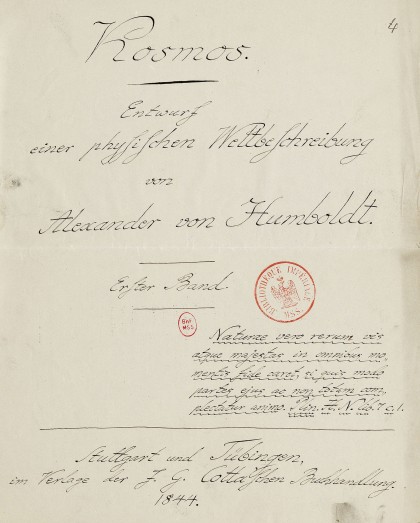 4
Kosmos.
Entwurf
einer physischen Weltbeschreibung
von
Alexander von Humboldt.
Erster Band.
BIBLIOTHÈQUE IMPÉRIALE
MSS.
BNF
MSS
Naturae vero rerum vis
atque majestas in omnibus mo-
mentis fide caret, si quis modo
partes ejus ac non totam com-
plectatur animo. Plin. H. N. lib. 7 c. 1.
Stuttgart und Tübingen,
im Verlage der J. G. Cotta'schen Buchhandlung.
1844.